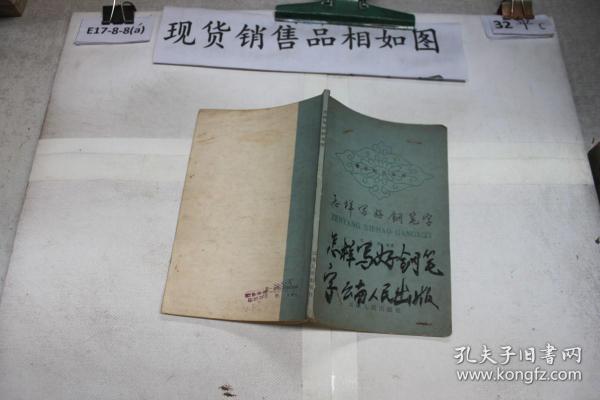 E17-8-8(a)
现货销售品相如图
32
怎样写好钢笔字
ZENYANG XIEHAO GANGBIZI
怎样写好钢笔
字云南人民出版
云南人民出版社
孔夫子旧书网
www.kongfz.com